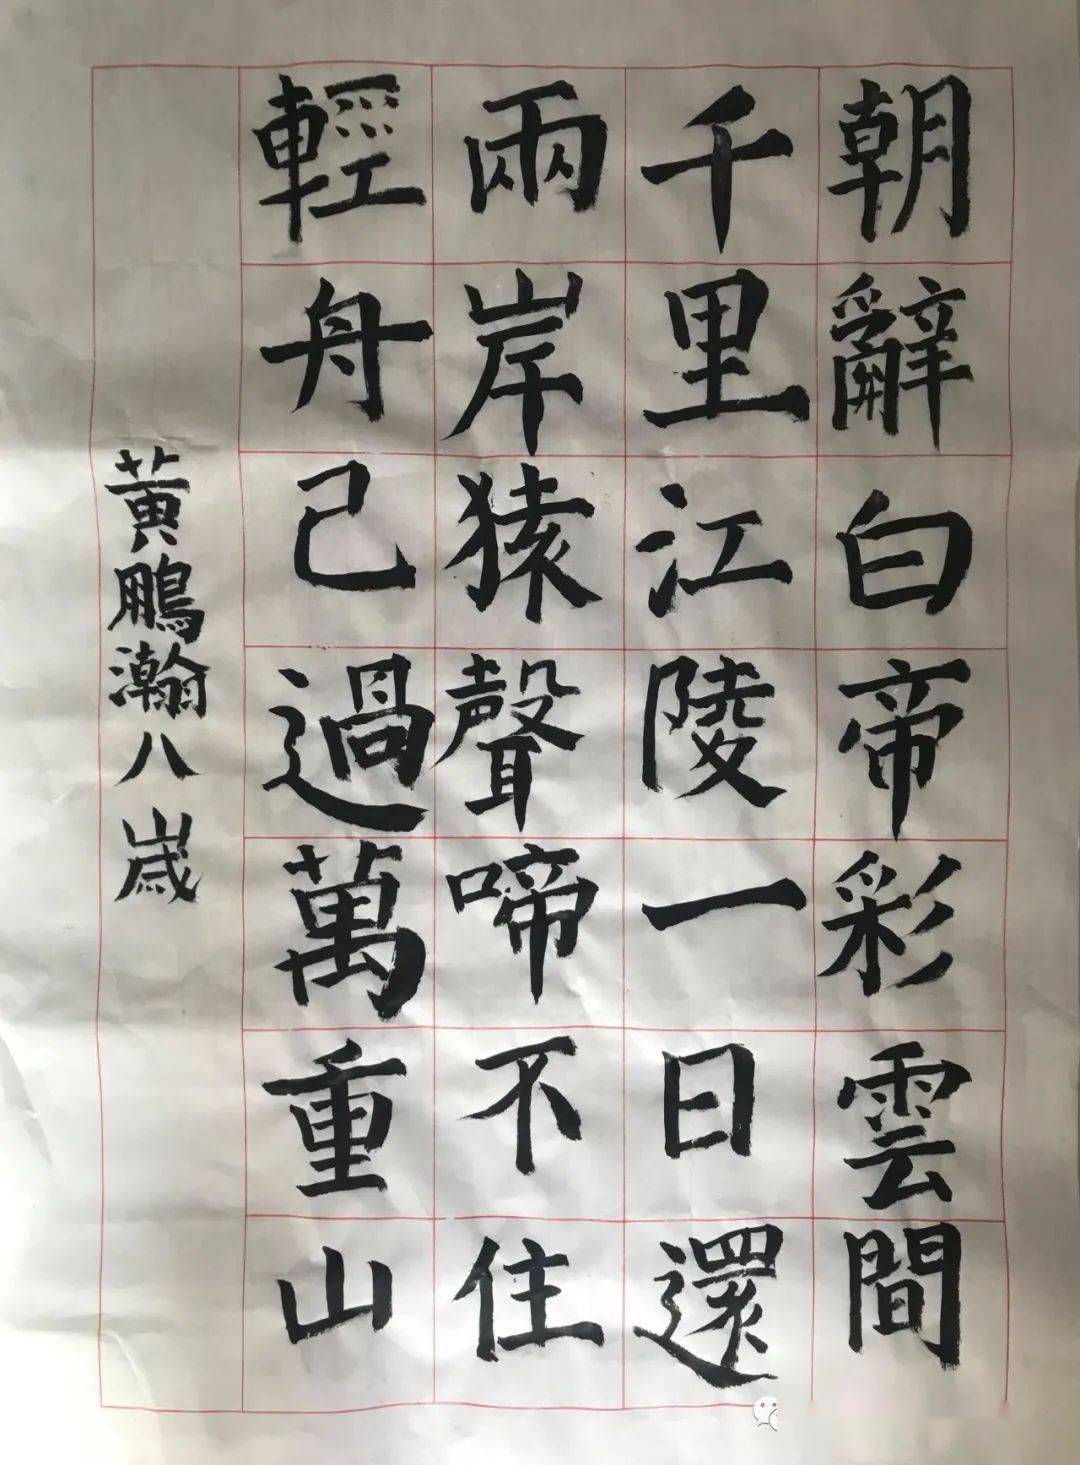 朝辭白帝彩雲間
千里江陵一日還
兩岸猿聲啼不住
輕舟己過萬重山
黃鵬瀚八歲